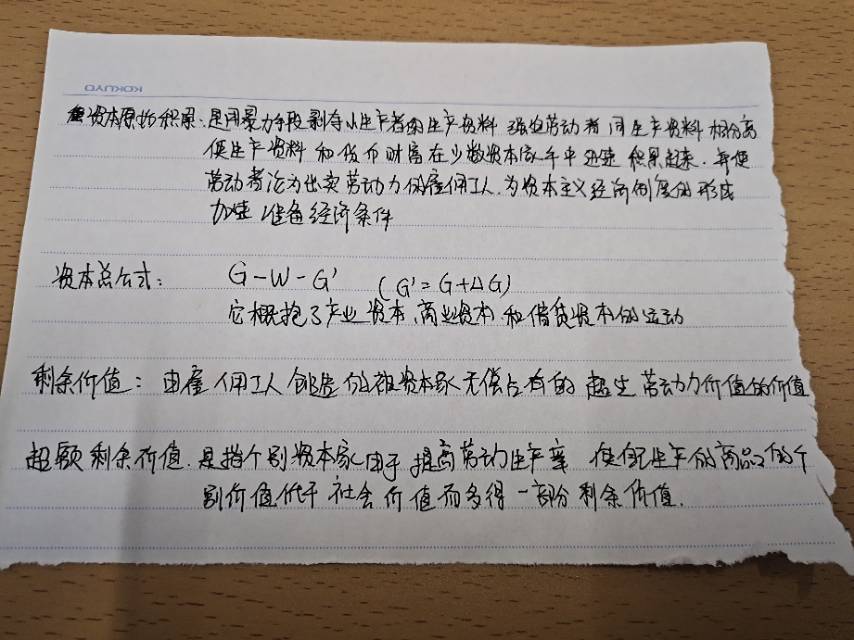 KOKUYO
资本原始积累:是用暴力手段剥夺小生产者的生产资料 强迫劳动者同生产资料相分离
使生产资料和货币财富在少数资本家手中迅速积累起来.并使
劳动者沦为出卖劳动力的雇佣工人.为资本主义经济制度的形成
加速准备经济条件
资本总公式: G-W-G' (G'=G+ΔG)
它概抱了产业资本、商业资本和借贷资本的运动
剩余价值:由雇佣工人创造的被资本家无偿占有的超出劳动力价值的价值
超额剩余价值.是指个别资本家由于提高劳动生产率 使自己生产的商品的个
别价值低于社会价值而多得一部分剩余价值.